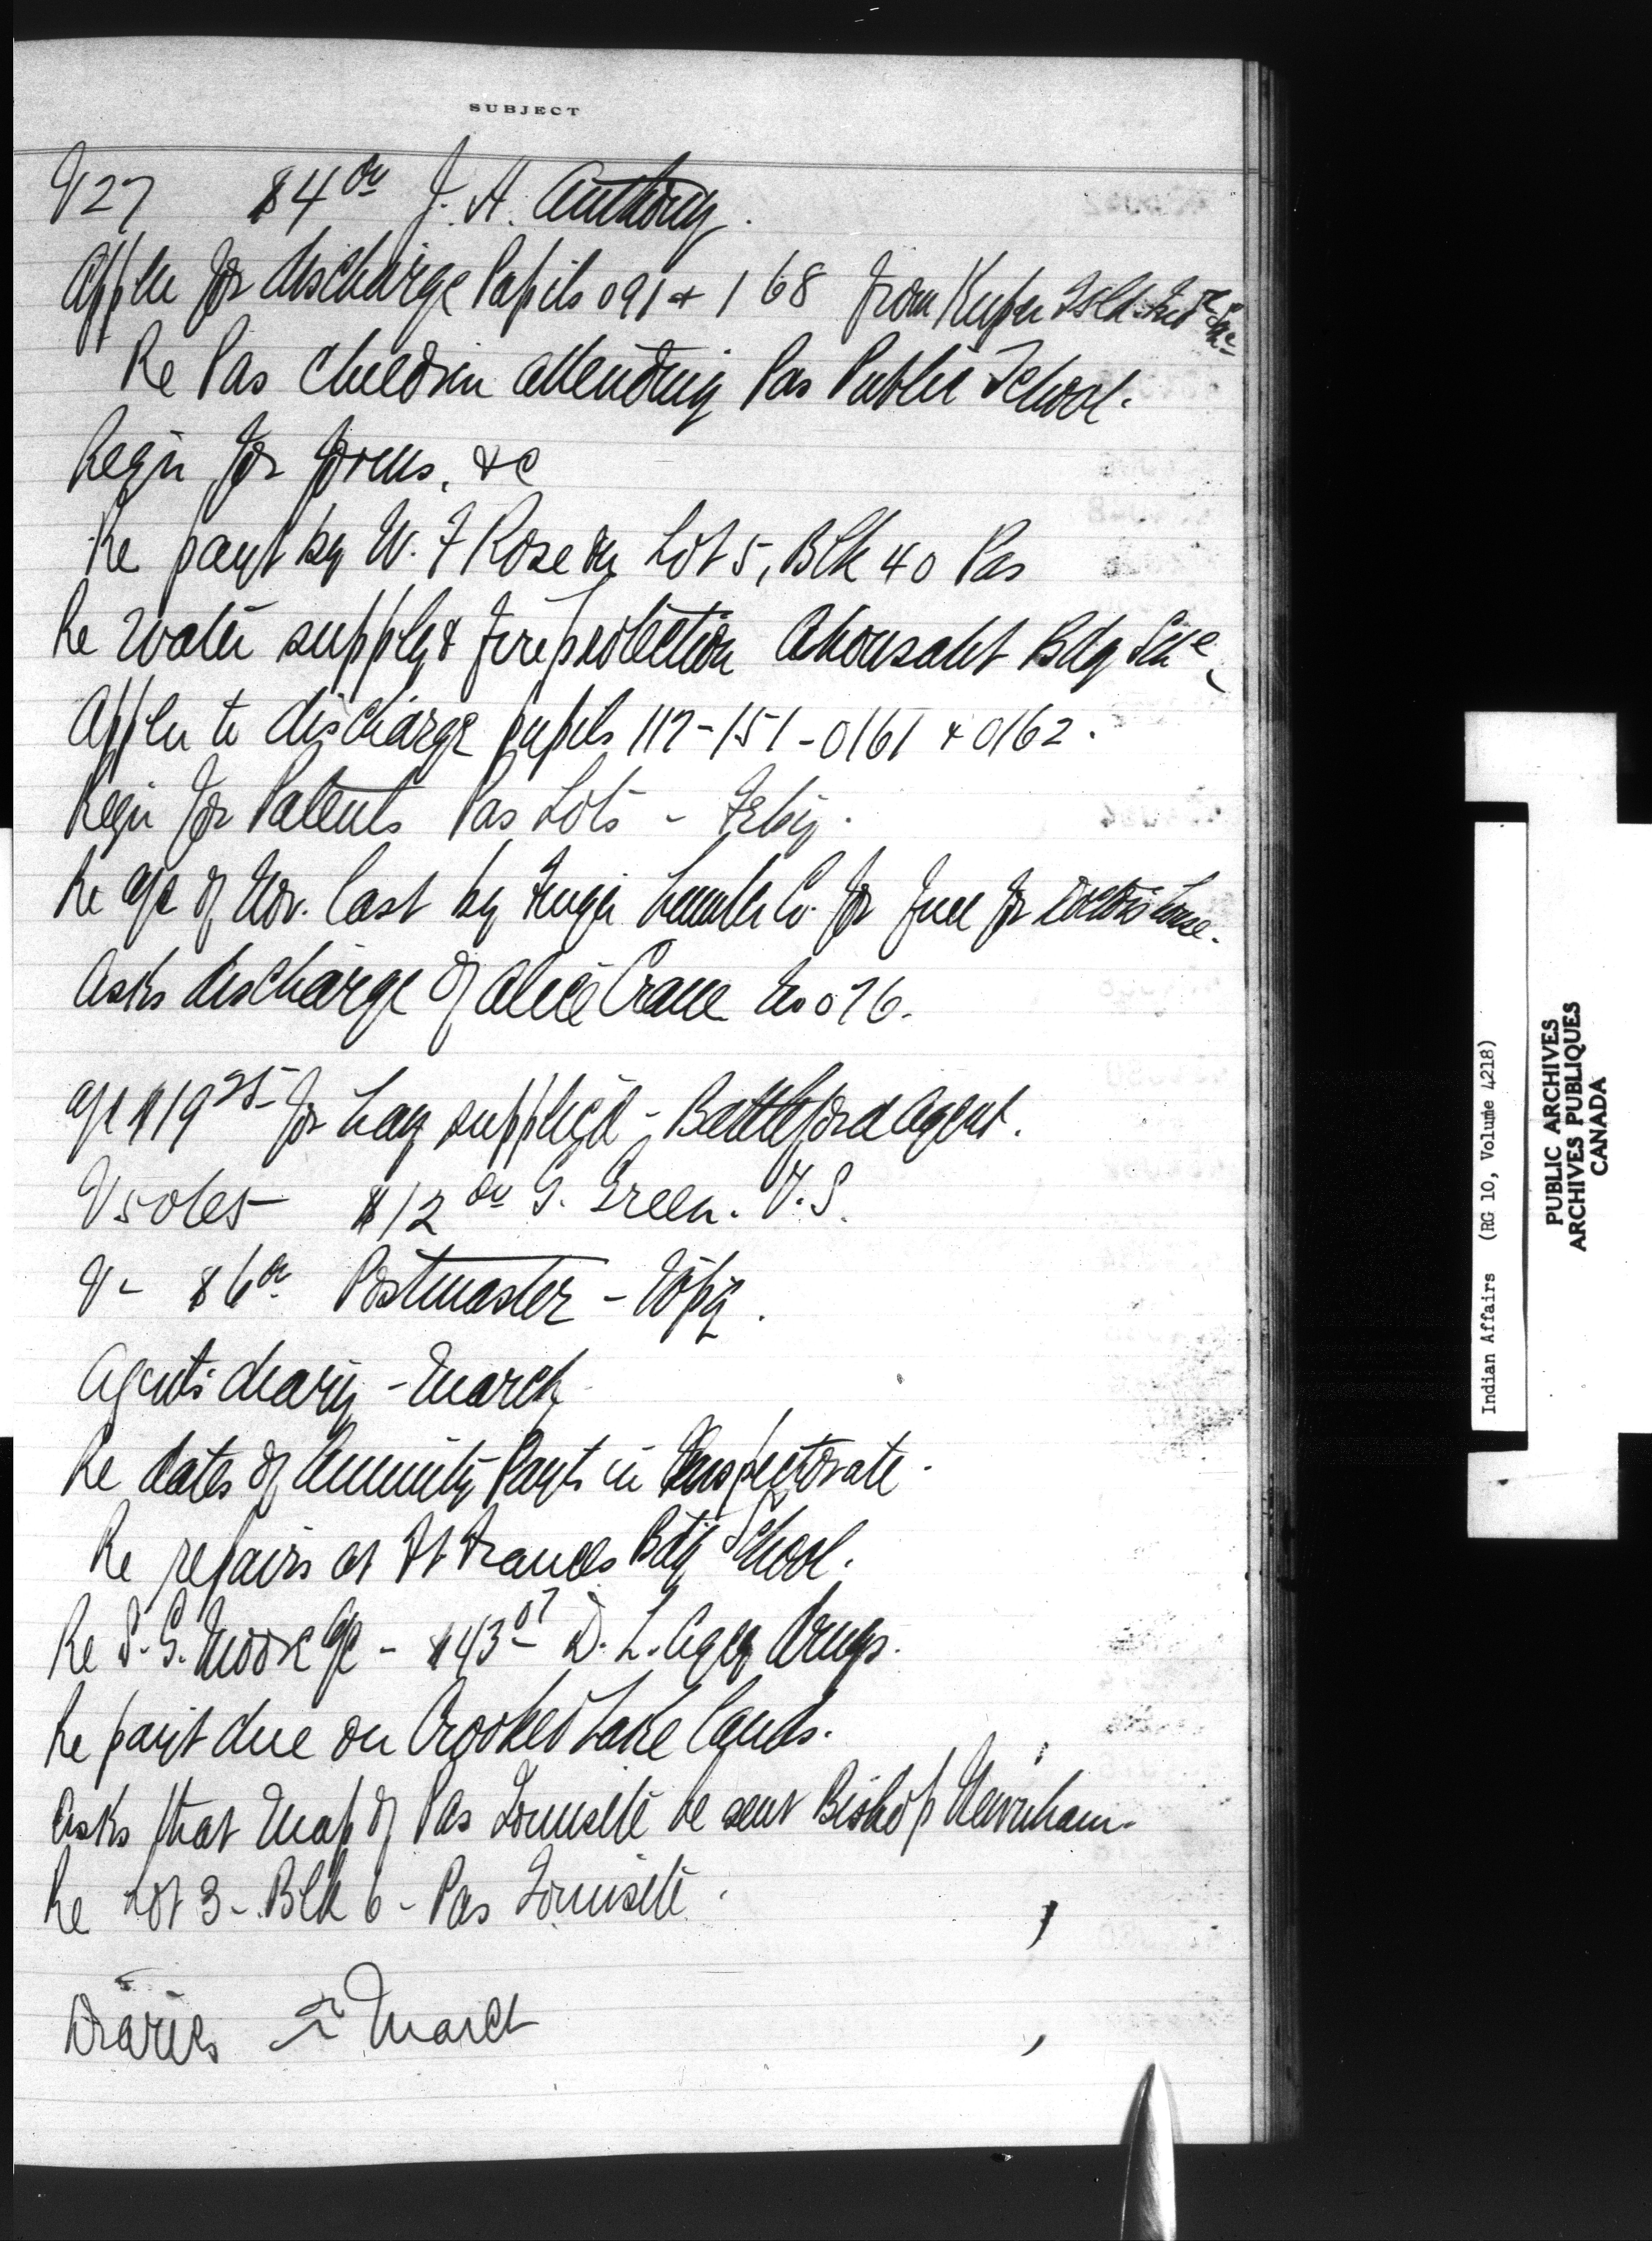 SUBJECT
V27 $4 00 J. H. Anthony.
Appln for discharge Pupils 091 + 168 from Kuper Isld. Ind Sch
Re Pas Children attending Pas Public School.
Reqn for forms, &c
Re payt by W. F Rose on Lot 5, Blk 40 Pas
Re Water supply & fire protection Ahousaht Bdg Schl
Appln to discharge pupils 117-151-0161 + 0162.
Reqn for Patents Pas Lots - Feby.
Re a/c of Nov. last by Lumber Co. for fuel for Doctor's house.
Asks discharge of Alice Crane No 076.
a/c $19 25 for hay supplied - Battleford Agent.
V5065 $12 00 G. Green. V.S.
V- $6 00 Postmaster - Wpg.
Agent's diary - March
Re dates of Annuity Payts in Inspectorate.
Re repairs at Ft Frances Bdg School.
Re S. G. Moore a/c - $43 07 D. L. Agcy Drugs.
Re payt due on Crooked Lake lands.
Asks that Map of Pas Townsite be sent Bishop Newnham.
Re Lot 3 - Blk 6 - Pas Townsite.
Diaries March
Indian Affairs (RG 10, Volume 4218)
PUBLIC ARCHIVES
ARCHIVES PUBLIQUES
CANADA